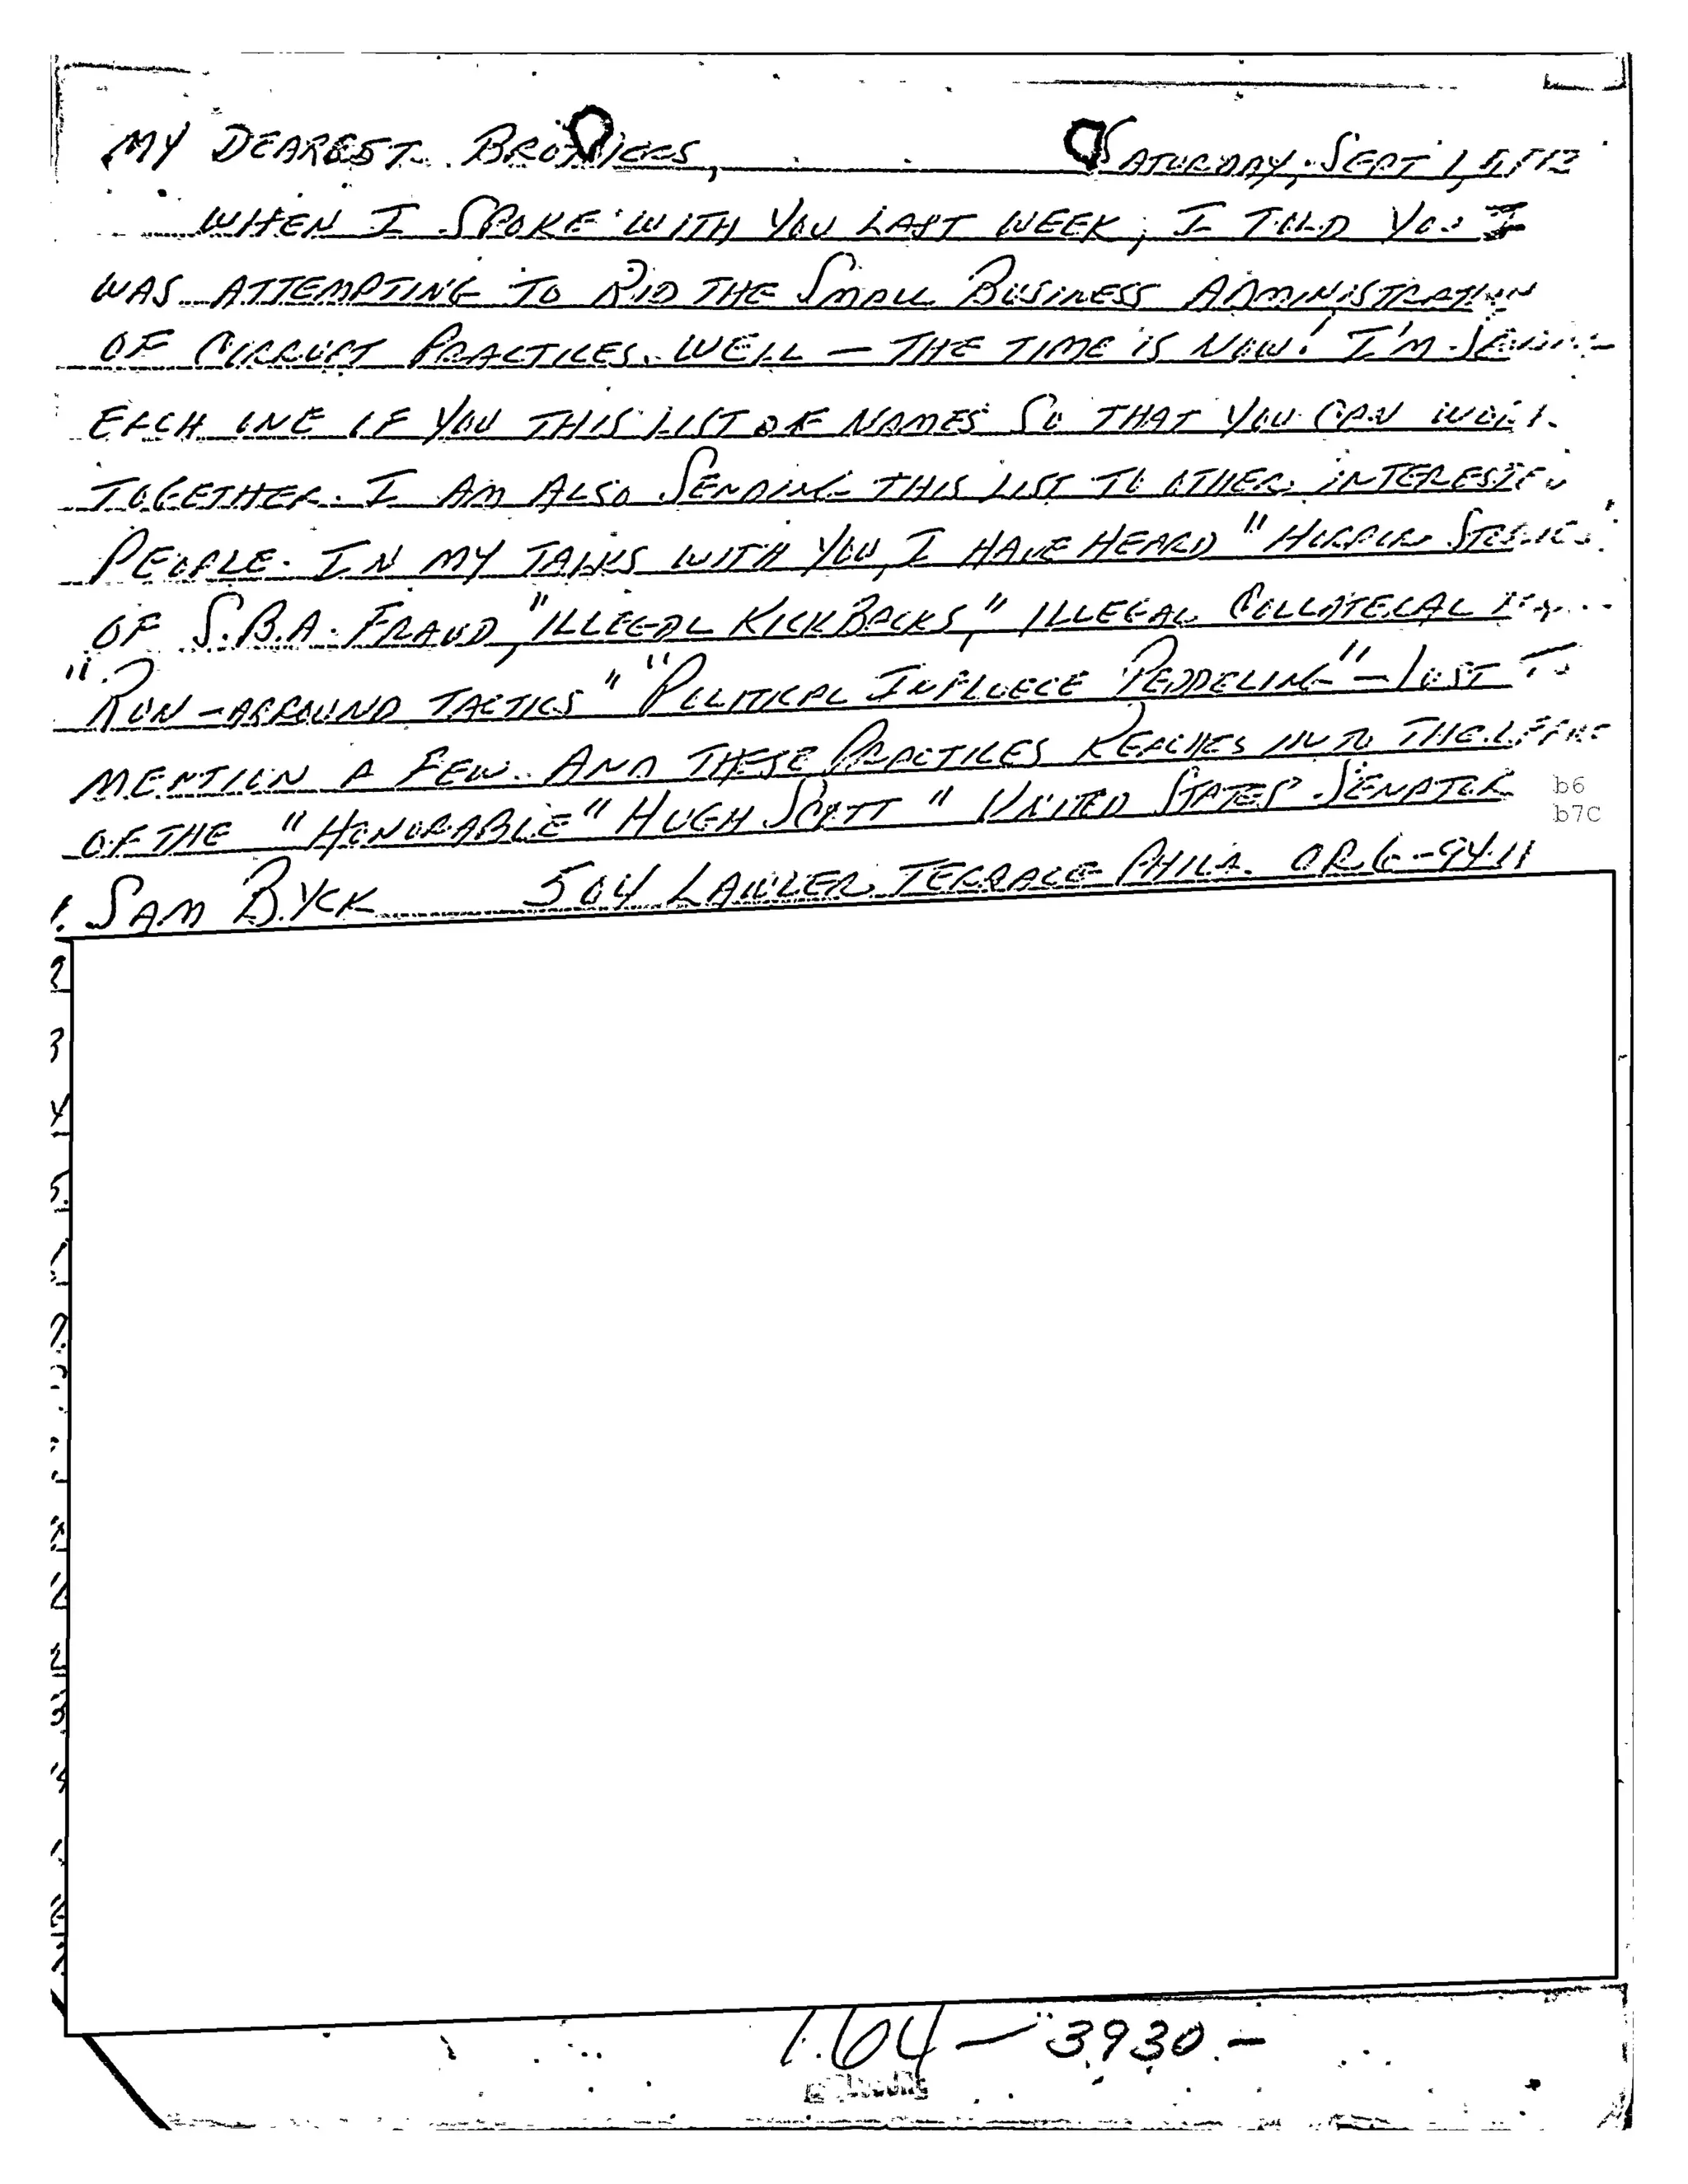 MY DEAREST BROTHERS, SATURDAY, SEPT 1,
WHEN I SPOKE WITH YOU LAST WEEK, I TOLD YOU I
WAS ATTEMPTING TO RID THE SMALL BUSINESS ADMINISTRATION
OF CORRUPT PRACTICES. WELL — THE TIME IS NOW! I'M
EACH ONE OF YOU THIS LIST OF NAMES SO THAT YOU CAN
TOGETHER. I AM ALSO SENDING THIS LIST TO OTHER INTERESTED
PEOPLE. IN MY TALKS WITH YOU, I HAVE HEARD "HORROR STORIES"
OF S.B.A. FRAUD, "ILLEGAL KICKBACKS," ILLEGAL COLLATERAL
"RUN-ARROUND TACTICS" "POLITICAL INFLUECE PEDDELING" — JUST TO
MENTION A FEW. AND THESE PRACTICES REACHES INTO THE
OF THE "HONORABLE" HUGH SCOTT" UNITED STATES SENATOR
b6
b7C
1. SAM BYCK 504 LAWLER TERRACE PHILA. OR6-9411
2
3
4
5.
164-3930-